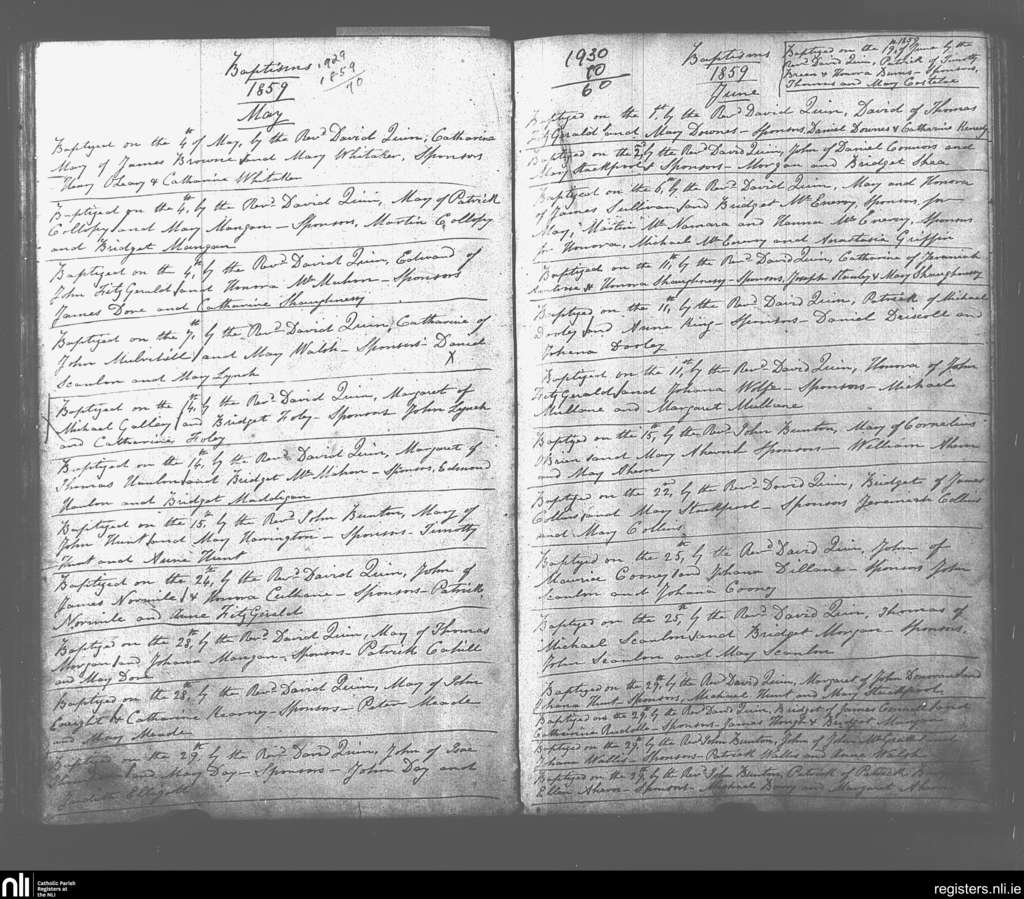 Baptisms
1859
May
1929
1859
70
Baptized on the 4th of May, by the Revd David Quin, Catharine
May of James Browne and May Whitaker, Sponsors
Henry O'Leary & Catharine Whitaker
Baptized on the 4th, by the Revd David Quin, May of Patrick
Collopy and May Mangan - Sponsors, Martin Collopy
and Bridget Mangan
Baptized on the 4th, by the Revd David Quin, Edward of
John FitzGerald and Honora McMahon - Sponsors
James Dore and Catharine Shaughnessy
Baptized on the 7th, by the Revd David Quin, Catharine of
John Mulvihill and May Walsh - Sponsors - Daniel
Scanlon and May Lynch
X
Baptized on the 14th, by the Revd David Quin, Margaret of
Michael and Bridget Foley - Sponsors John Lynch
and Catharine Foley
Baptized on the 14th, by the Revd David Quin, Margaret of
Thomas Hanlon and Bridget McMahon - Sponsors, Edmond
Hanlon and Bridget Maddigan
Baptized on the 15th, by the Revd John Bunton, May of
John Hunt and May Harington - Sponsors - Timothy
Hunt and Anne Hunt
Baptized on the 24th, by the Revd David Quin, John of
James Normile & Honora Culhane - Sponsors - Patrick
Normile and Anne FitzGerald
Baptized on the 28th, by the Revd David Quin, May of Thomas
Morgan and Johana Mangan - Sponsors - Patrick Cahill
and May Dore
Baptized on the 28th, by the Revd David Quin, May of John
Enright & Catharine Kearney - Sponsors - Peter Meade
and May Meade
Baptized on the 29th, by the Revd David Quin, John of
and May Day - Sponsors - John Day and
Elligott
1930
70
60
Baptisms
1859
June
Baptized on the 19th of June by the
Revd David Quin, Patrick of Timothy
Breen & Honora Burns - Sponsors,
Thomas and May Costeloe
Baptized on the 1st, by the Revd David Quin, David of Thomas
FitzGerald and May Downes - Sponsors Daniel Downes & Catharine Kennedy
Baptized on the 2nd, by the Revd David Quin, John of Daniel Connors and
May Stackpool & Sponsors - Morgan and Bridget Shea
Baptized on the 6th, by the Revd David Quin, May and Honora
of James Sullivan and Bridget McEnery, Sponsors for
May, Martin McNamara and Hanna McEnery, Sponsors
for Honora, Michael McEnery and Anastasia Griffin
Baptized on the 11th, by the Revd David Quin, Catharine of Jeremiah
& Honora Shaughnessy - Sponsors, Joseph Hanley & May Shaughnessy
Baptized on the 11th, by the Revd David Quin, Patrick of Michael
Dooley and Anne King - Sponsors - Daniel Driscoll and
Johana Dooley
Baptized on the 11th, by the Revd David Quin, Honora of John
FitzGerald and Johana Wolfe - Sponsors - Michael
Mullane and Margaret Mullane
Baptized on the 15th, by the Revd John Bunton, May of Cornelius
O'Brien and May Ahern Sponsors - William Ahern
and May Ahern
Baptized on the 22nd, by the Revd David Quin, Bridget of James
Collins and May Stackpool - Sponsors Jeremiah Collins
and May Collins
Baptized on the 25th, by the Revd David Quin, John of
Maurice Cooney and Johana Dillane - Sponsors John
Scanlon and Johana Cooney
Baptized on the 25th, by the Revd David Quin, Thomas of
Michael Scanlon and Bridget Morgan - Sponsors
John Scanlon and May Scanlon
Baptized on the 29th, by the Revd David Quin, Margaret of John Donovan and
Johana Hunt - Sponsors, Michael Hunt and May Stackpool
Baptized on the 29th, by the Revd David Quin, Bridget of James Connell and
Catharine - Sponsors - James & Bridget Mangan
Baptized on the 29th, by the Revd John Bunton, John of John McGrath and
Johana Wallis - Sponsors - Patrick Wallis and Walsh
Baptized on the 29th, by the Revd John Bunton, Patrick of Patrick
Ellen Ahern - Sponsors - Michael and Margaret Ahern
nli
Catholic Parish
Registers at
the NLI
registers.nli.ie